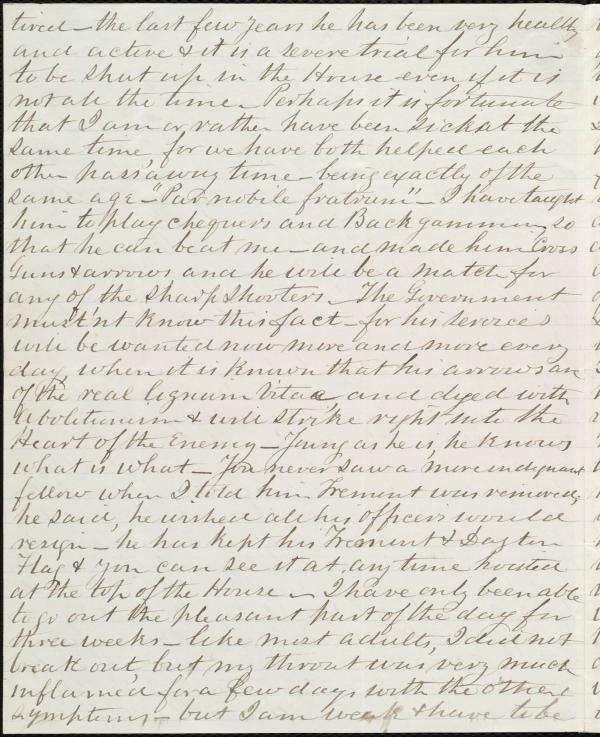 tired – the last few years he has been very healthy
and active & it is a severe trial for him
to be shut up in the House even if it is
not all the time – Perhaps it is fortunate
that I am or, rather have been sick at the
same time, for we have both helped each
other pass'away time – being exactly of the
same age – "Par nobile fratrum" – I have taught
him to play chequers and Backgammon, so
that he can beat me – and made him Cross
Guns & arrows and he will be a match for
any of the sharp shooters – The Government
must'nt know this fact – for his services
will be wanted now more and more every
day, when it is known that his arrows are
of the real lignum vitae and dyed with
Abolitionism & will strike right into the
Heart of the Enemy – Young as he is, he knows
what is what – You never saw a more indignant
fellow when I told him Fremont was removed;
he said, he wished all his officers would
resign – he has kept his Fremont & Dayton
Flag & you can see it at any time hoisted
at the top of the House – I have only been able
to go out the pleasant part of the day for
three weeks – like most adults, I did not
break out, but my throat was very much
inflamed for a few days with the other
symptoms – but I am weak & have to be